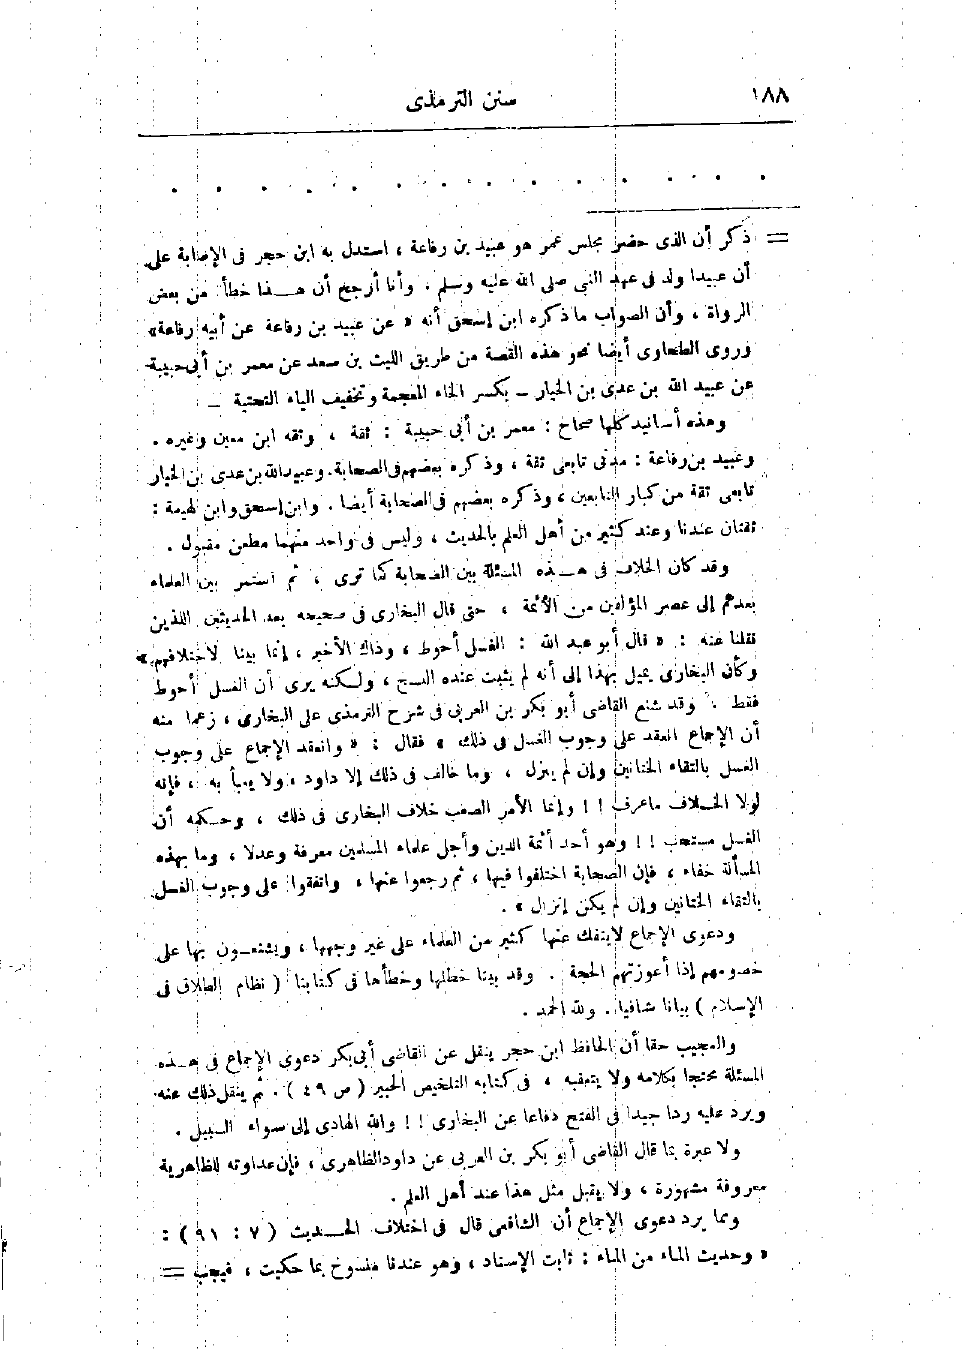 ١٨٨
سنن الترمذى
. . . . . . . . . . . . . .
= ذكر أن الذى حضر مجلس عمر هو عبيد بن رفاعة ، استدل به ابن حجر فى الإصابة على
أن عبيدا ولد فى عهد النبى صلى الله عليه وسلم . وأنا أرجح أن هـذا خطأ من بعض
الرواة ، وأن الصواب ما ذكره ابن إسحق أنه « عن عبيد بن رفاعة عن أبيه رفاعة »
وروى الطحاوى أيضا نحو هذه القصة من طريق الليث بن سعد عن معمر بن أبى حبيبة
عن عبيد الله بن عدى بن الخيار – بكسر الخاء المعجمة وتخفيف الياء التحتية –
وهذه أسانيد كلها صحاح : معمر بن أبى حبيبة : ثقة ، وثقه ابن معين وغيره .
وعبيد بن رفاعة : مدنى تابعى ثقة ، وذكره بعضهم فى الصحابة . وعبيد الله بن عدى بن الخيار
تابعى ثقة من كبار التابعين ، وذكره بعضهم فى الصحابة أيضا . وابن إسحق وابن لهيعة :
ثقتان عندنا وعند كثير من أهل العلم بالحديث ، وليس فى واحد منهما مطعن مقبول .
وقد كان الخلاف فى هـذه المسئلة بين الصحابة كما ترى ، ثم استمر بين العلماء
بعدهم إلى عصر المؤلفين من الأئمة ، حتى قال البخارى فى صحيحه بعد الحديثين اللذين
نقلنا عنه : « قال أبو عبد الله : الغسل أحوط ، وذاك الأخير ، إنما بينا لاختلافهم »
وكأن البخارى يميل بهذا إلى أنه لم يثبت عنده النسخ ، ولـكنه يرى أن الغسل أحوط
فقط . وقد شنع القاضى أبو بكر بن العربى فى شرح الترمذى على البخارى ، زعما منه
أن الإجماع انعقد على وجوب الغسل فى ذلك » فقال : « وانعقد الإجماع على وجوب
الغسل بالتقاء الختانين وإن لم ينزل ، وما خالف فى ذلك إلا داود ، ولا يعبأ به ، فإنه
لولا الخـلاف ماعرف !! وإنما الأمر الصعب خلاف البخارى فى ذلك ، وحـكمه أن
الغسل مستحب !! وهو أحد أئمة الدين وأجل علماء المسلمين معرفة وعدلا ، وما بهذه
المسألة خفاء ، فإن الصحابة اختلفوا فيها ، ثم رجعوا عنها ، واتفقوا على وجوب الغسل
بالتقاء الختانين وإن لم يكن إنزال » .
ودعوى الإجماع لاينفك عنها كثير من العلماء على غير وجهها ، ويشنعـون بها على
خصومهم إذا أعوزتهم الحجة . وقد بينا خطلها وخطأها فى كتابنا ( نظام الطلاق فى
الإسلام ) بيانا شافيا . ولله الحمد .
والعجيب حقا أن الحافظ ابن حجر ينقل عن القاضى أبى بكر دعوى الإجماع فى هـذه
المسئلة محتجا بكلامه ولا يتعقبه ، فى كتابه التلخيص الحبير ( ص ٤٩ ) . ثم ينقل ذلك عنه
ويرد عليه ردا جيدا فى الفتح دفاعا عن البخارى !! والله الهادى إلى سواء السبيل .
ولا عبرة بما قال القاضى أبو بكر بن العربى عن داود الظاهرى ، فإن عداوته للظاهرية
معروفة مشهورة ، ولا يقبل مثل هذا عند أهل العلم .
ومما يرد دعوى الإجماع أن الشافعى قال فى اختلاف الحـديث ( ٧ : ٩١ ) :
« وحديث الماء من الماء : ثابت الإسناد ، وهو عندنا منسوخ بما حكيت ، فيجب =